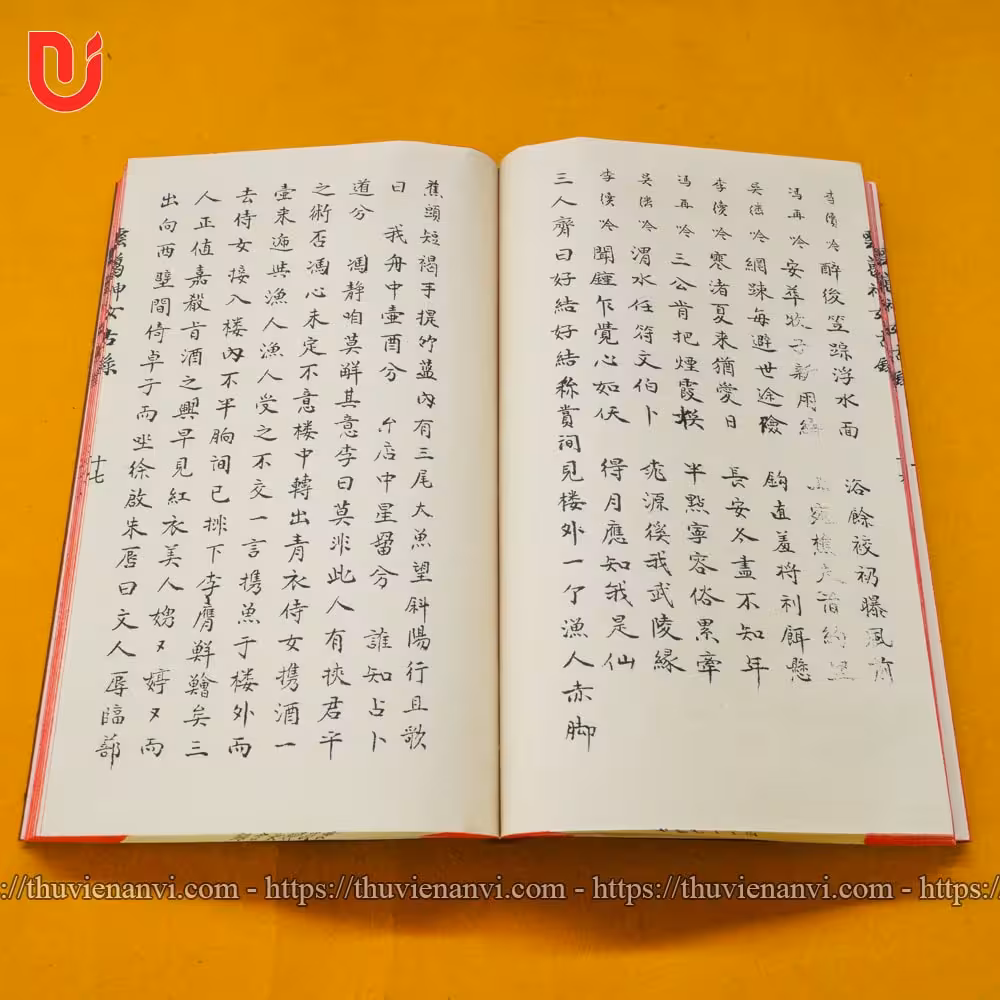 李 吟 醉後笠蹤浮水面 浴餘 曝風前
馮再吟 安莘牧子新用
吳 吟 網踈每避世途險 鈎直羞將利餌懸
李 吟 寒渚夏來猶愛日 長安冬盡不知年
馮再吟 三公肯把煙霞換 半點寧容俗累牽
吳 吟 渭水任符文伯卜 桃源徯我武陵緣
李 吟 聞鐘乍覺心如仸 得月應知我是仙
三人齊曰好結好結称賞间見楼外一个漁人赤脚
蕉頭短褐手提竹藍內有三尾大魚望斜陽行且歌
曰 我舟中壷酉兮 尒店中星畱兮 誰知占卜
道兮 馮静咱莫觧其意李曰莫非此人有挾君平
之術否馮心未定不意楼中轉出青衣侍女携酒一
壷来迊與漁人漁人受之不交一言携魚于楼外而
去侍女接入楼內不半晌间已排下李膺鮮鱠矣三
人正值嘉殽旨酒之興早見紅衣美人嫋〻婷〻而
出向西壁間倚卓子而坐徐啟朱唇曰文人辱臨鄙
雲葛神女古錄
十七
://thuvienanvi.com - https://thuvienanvi.com - https://thuvienanvi.com - https